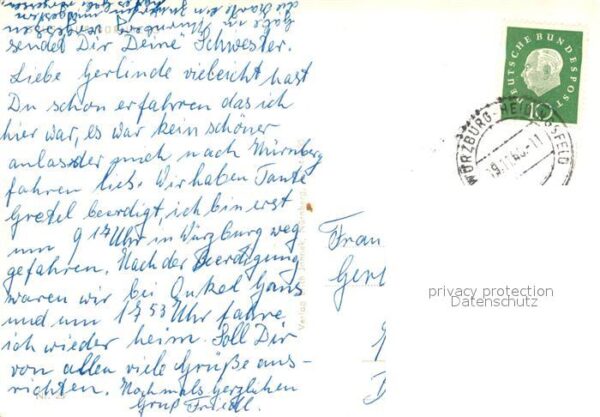 habe in Nürnberg vergessen
sendet Dir Deine Schwester.
Liebe Gerlinde vieleicht hast
Du schon erfahren das ich
hier war, es war kein schöner
anlas der mich nach Nürnberg
fahren lies. Wir haben Tante
Gretel beerdigt, ich bin erst
um 9 17 Uhr in Würzburg weg
gefahren. Nach der Beerdigung
waren wir bei Onkel Hans
und um 17 53 Uhr fahre
ich wieder heim. Soll Dir
von allen viele Grüße aus-
richten. Nochmals herzlichen
Gruß Friedl.
DEUTSCHE BUNDESPOST
10
WÜRZBURG-HEIDINGSFELD
Frau
Ger
privacy protection
Datenschutz
Verlag
Nürnberg